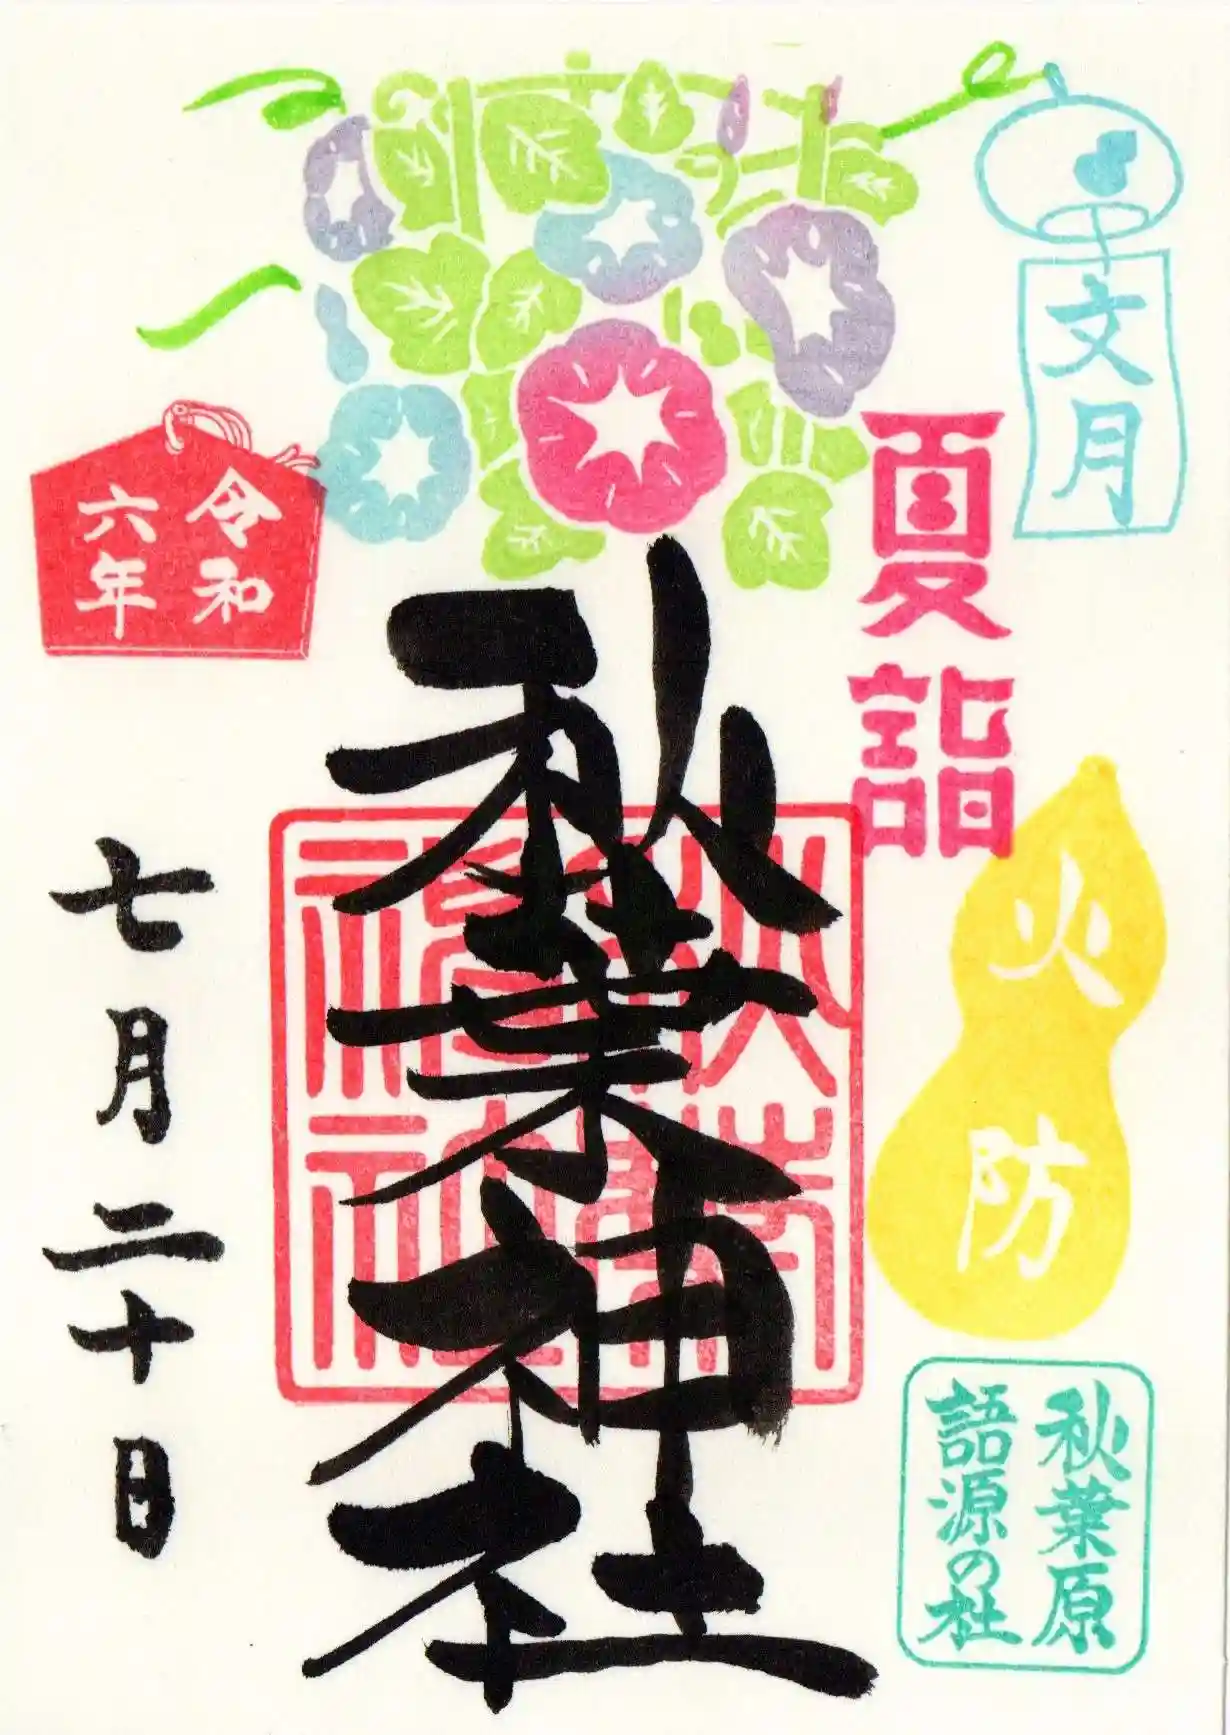 文月
夏詣
火防
秋葉原
語源の社
秋葉神社
秋葉
神社
令和
六年
七月二十日